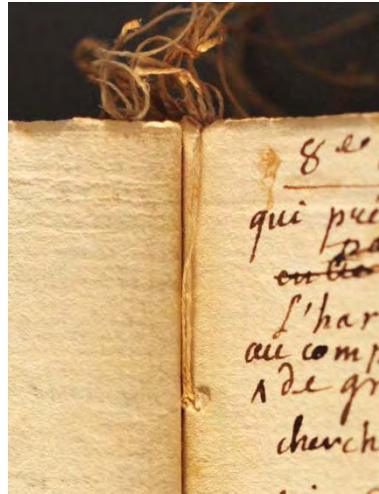 8e
qui pré
pa
l'har
au comp
∧ de gr
cherch